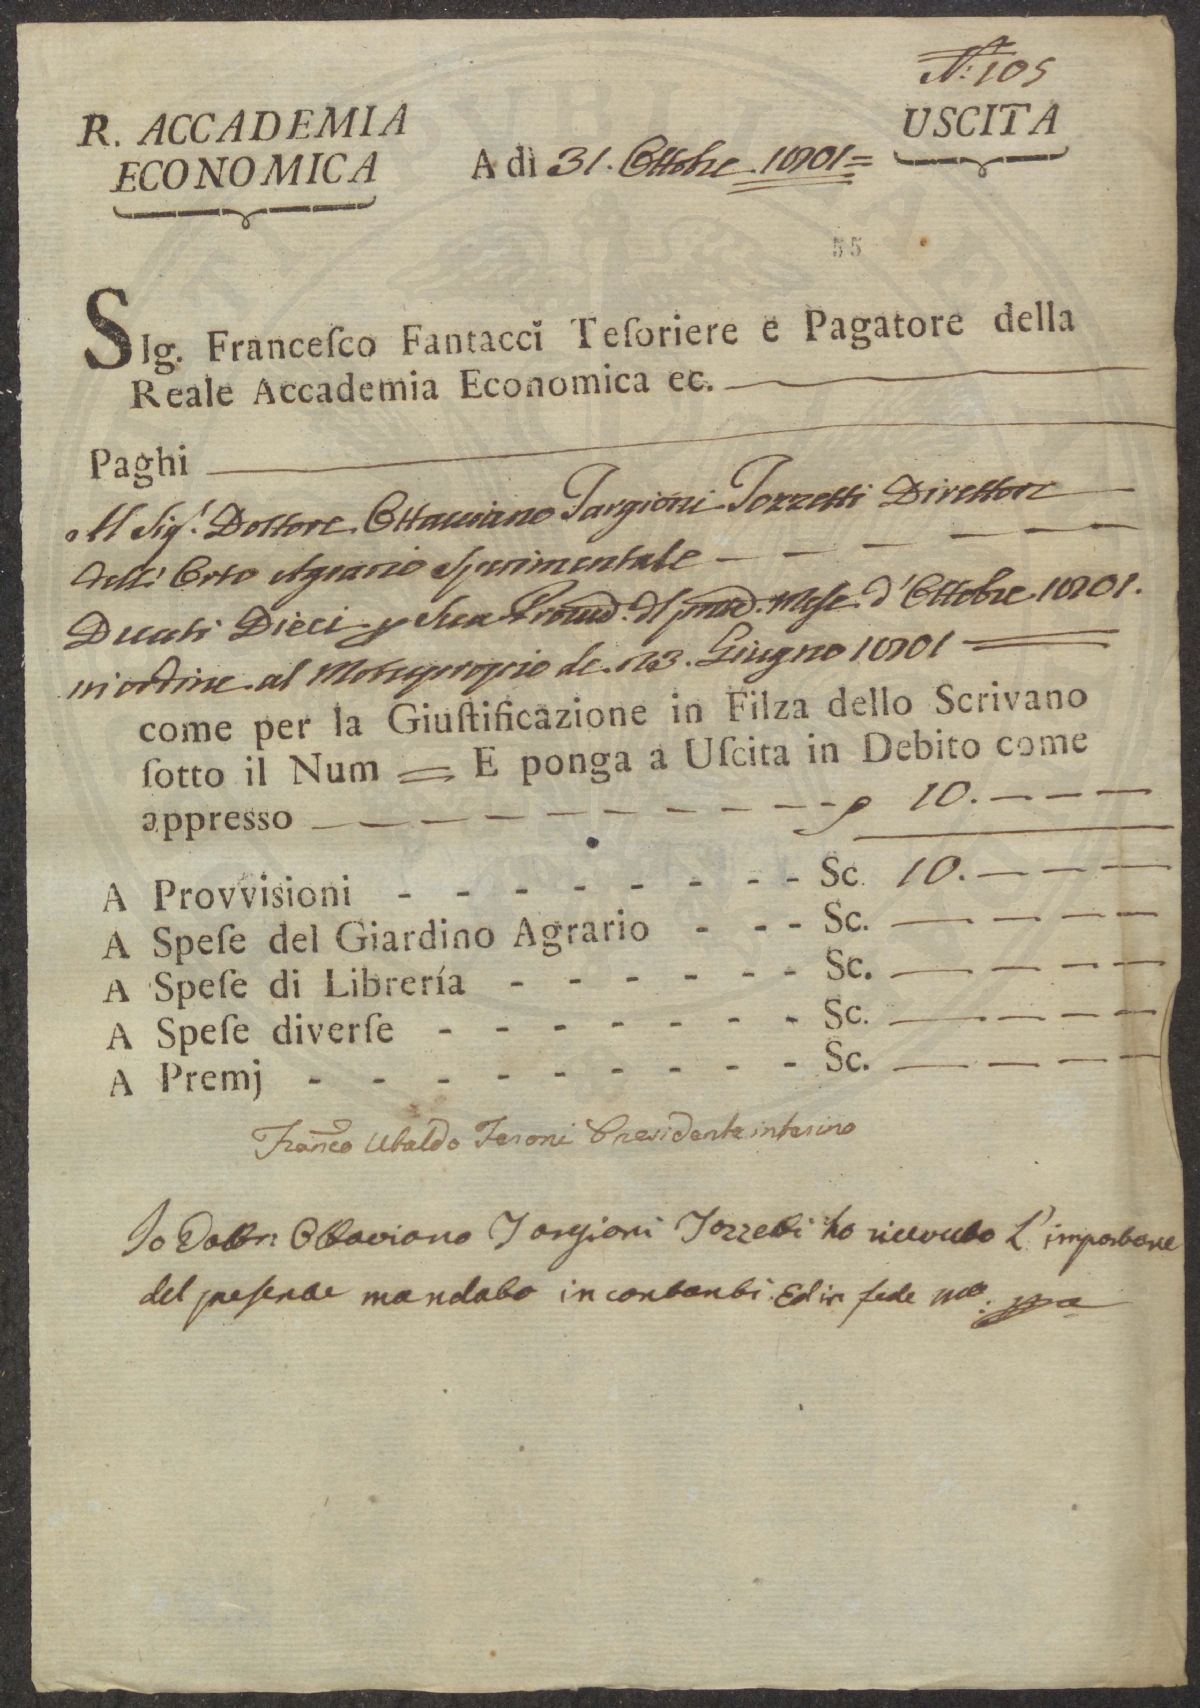 N.° 105
R. ACCADEMIA
ECONOMICA
A dì 31. Ottobre 1801
USCITA
55
SIg. Franceſco Fantacci Teſoriere e Pagatore della
Reale Accademia Economica ec.
Paghi
Al Sig.r Dottore Ottaviano Targioni Tozzetti Direttore
dell' Orto Agrario Sperimentale
Ducati Dieci p Sua Provvid. d pnted. Mese d'Ottobre 1801.
in ordine al Motuproprio de 23. Giugno 1801
come per la Giuſtificazione in Filza dello Scrivano
ſotto il Num = E ponga a Uſcita in Debito come
appresso - - - - - - - - - 10. - - -
A Provvisioni - - - - - - - - Sc. 10. - - -
A Speſe del Giardino Agrario - - - Sc. - - - -
A Speſe di Librería - - - - - - Sc. - - - -
A Speſe diverſe - - - - - - - Sc. - - - -
A Premj - - - - - - - - - Sc. - - - -
Franco Ubaldo Feroni Presidente interino
Io Dottor Ottaviano Targioni Tozzetti ho ricevuto L' importare
del preſente mandato in contanti Ed in fede mo: ppa